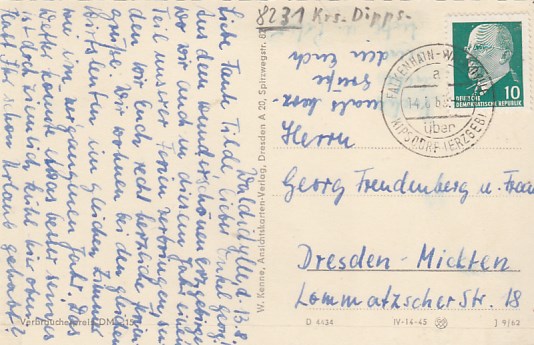 8231 Krs. Dipps.
Waldidylle d. 13.8.
Liebe Tante Tilde, lieber Onkel Georg!
Aus dem wunderschönen Erzgebirge,
wo wir auch in diesem Jahr einen
Teil unserer Ferien verbringen, senden
wir Euch recht herzliche Ferien-
grüße. Wir wohnen bei den gleichen
Wirtsleuten im gleichen Zimmer
wie im vergangenen Jahr. Das
Wetter könnte etwas besser sein, es
ist doch ziemlich kühl hier oben.
Habt Ihr schon Urlaub gehabt?
mals herz-
Grüße
Euch
FALKENHAIN-WALDIDYLLE
a
14.
über
KIPSDORF (ERZGEB)
10
DEUTSCHE DEMOKRATISCHE REPUBLIK
Herrn
Georg Freudenberg u. Frau
Dresden-Mickten
Lommatzscher Str. 18
W. Kenne, Ansichtskarten-Verlag, Dresden A 20, Spitzwegstr.
Verbraucherpreis DM
D 4434
IV-14-45
J 9/62